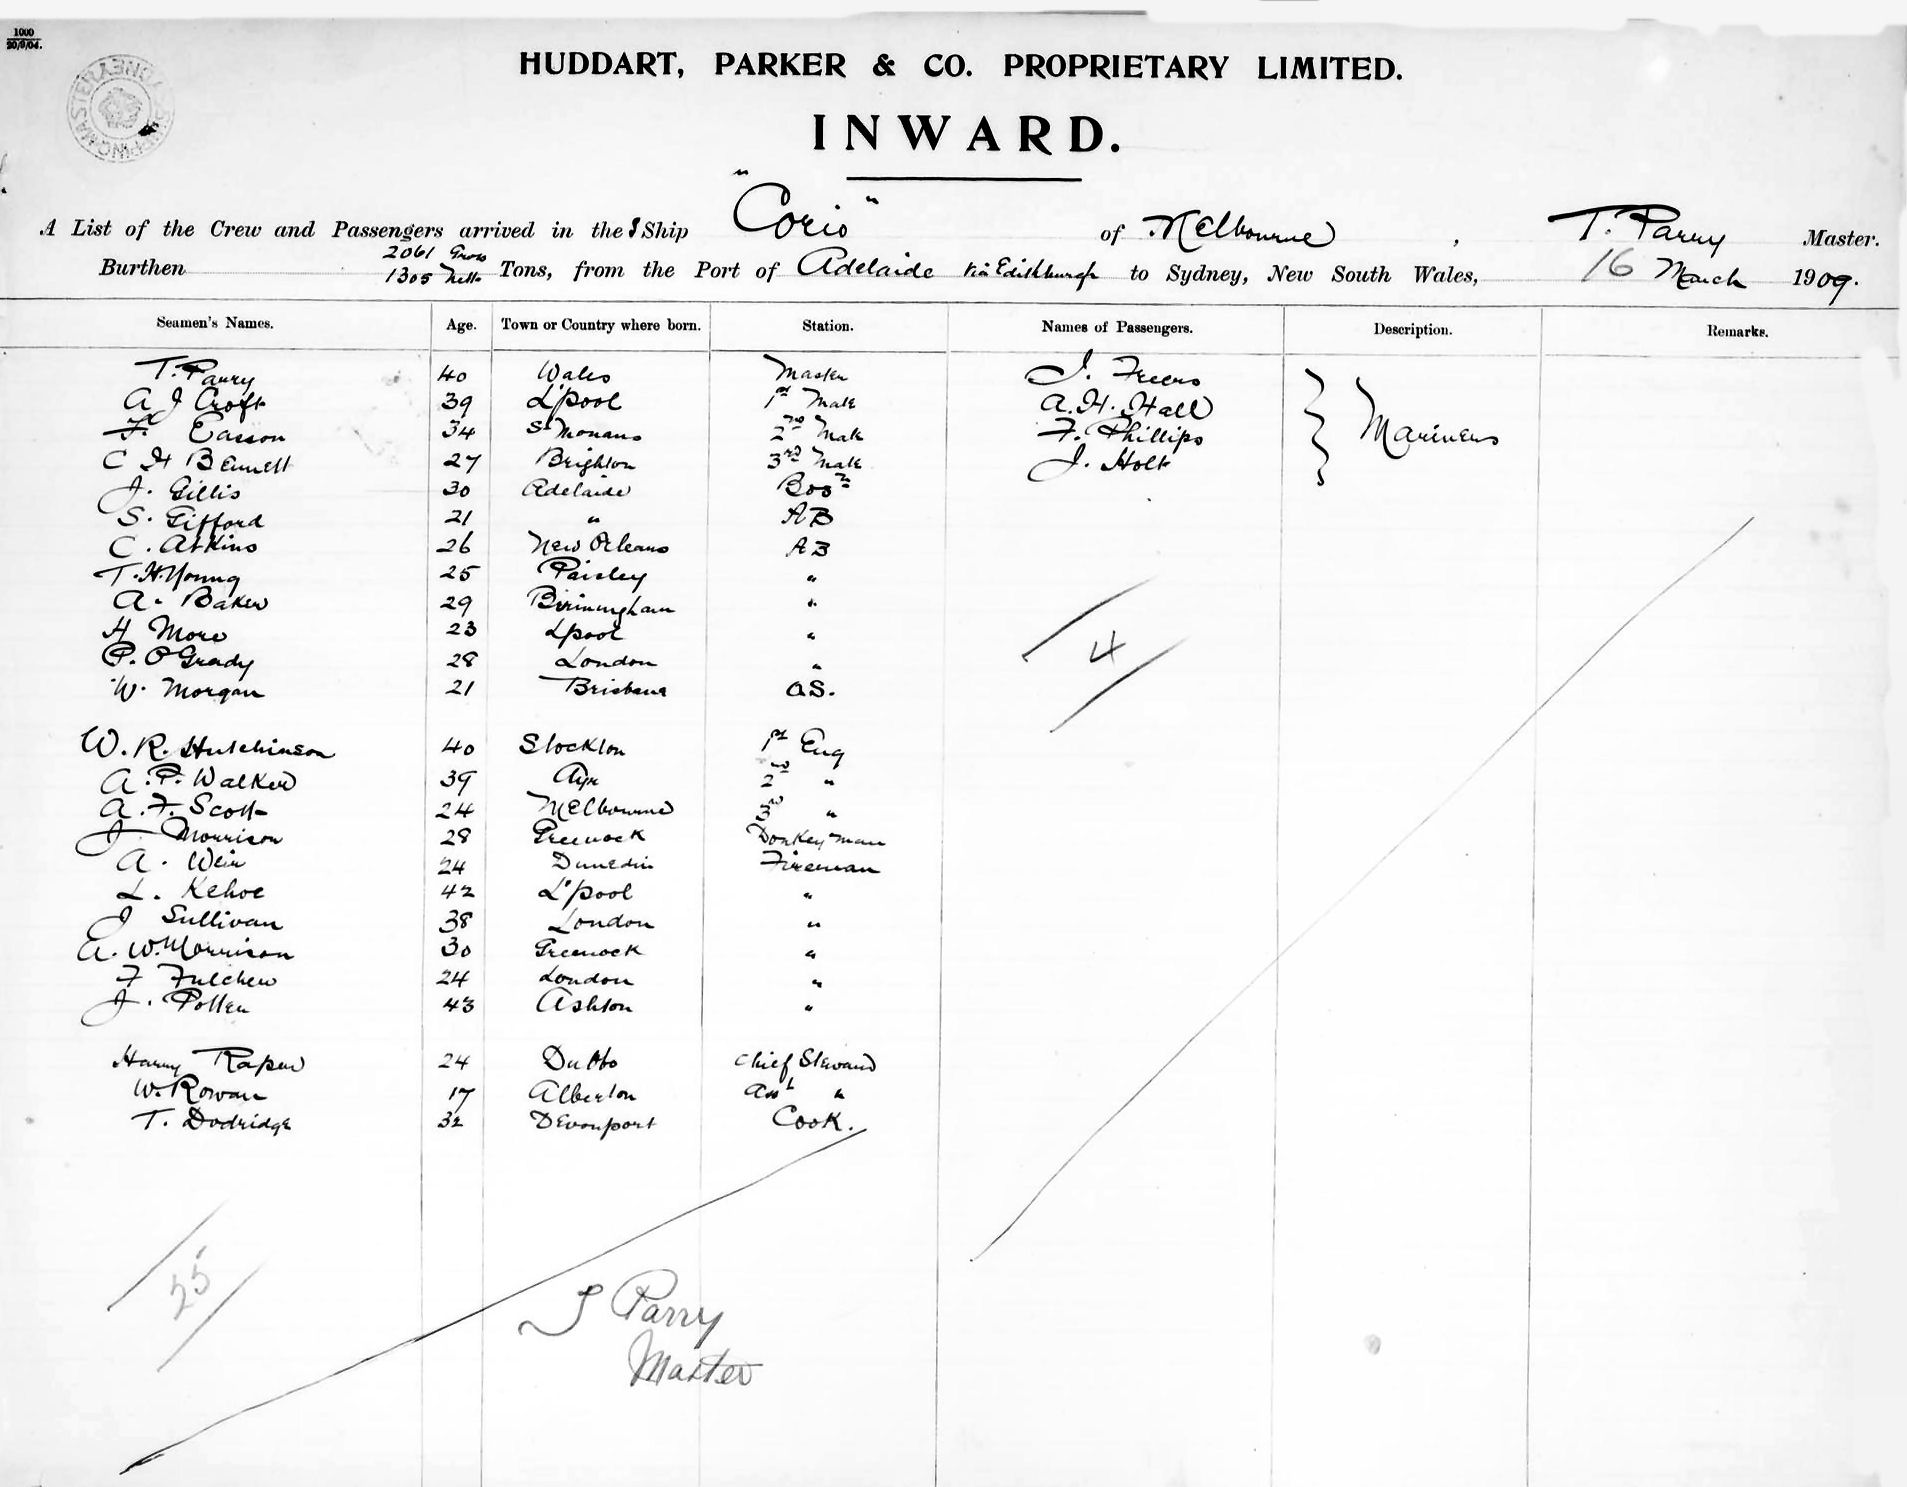 1000
20/9/04.
HUDDART, PARKER & CO. PROPRIETARY LIMITED.
INWARD.
A List of the Crew and Passengers arrived in the S Ship "Corio" of Melbourne, T. Parry Master.
Burthen 2061 Gross 1305 Nett Tons, from the Port of Adelaide via Edithburgh to Sydney, New South Wales, 16 March 1909.
Seamen's Names. Age. Town or Country where born. Station. Names of Passengers. Description. Remarks.
T. Parry 40 Wales Master J. Freers Mariners
A J Croft 39 L'pool 1st Mate A. H. Hall
F. Easson 34 St Monans 2nd Mate F. Phillips
C H Bennett 27 Brighton 3rd Mate J. Holt
J. Gillis 30 Adelaide Bosn
S. Gifford 21 " AB
C. Atkins 26 New Orleans AB
T. H. Young 25 Paisley "
A. Baker 29 Birmingham "
H More 23 Lpool "
P. O'Grady 28 London "
W. Morgan 21 Brisbane OS.
4
W. R. Hutchinson 40 Stockton 1st Eng
A. P. Walker 39 Ayr 2nd "
A. F. Scott 24 Melbourne 3rd "
J Morrison 28 Greenock Donkeyman
A. Weir 24 Dunedin Fireman
L. Kehoe 42 L'pool "
J Sullivan 38 London "
A. W. Morrison 30 Greenock "
F Fulcher 24 London "
J. Potter 43 Ashton "
Harry Raper 24 Dubbo Chief Steward
W. Rowan 17 Alberton Asst "
T. Dodridge 32 Devonport Cook.
25
T Parry
Master